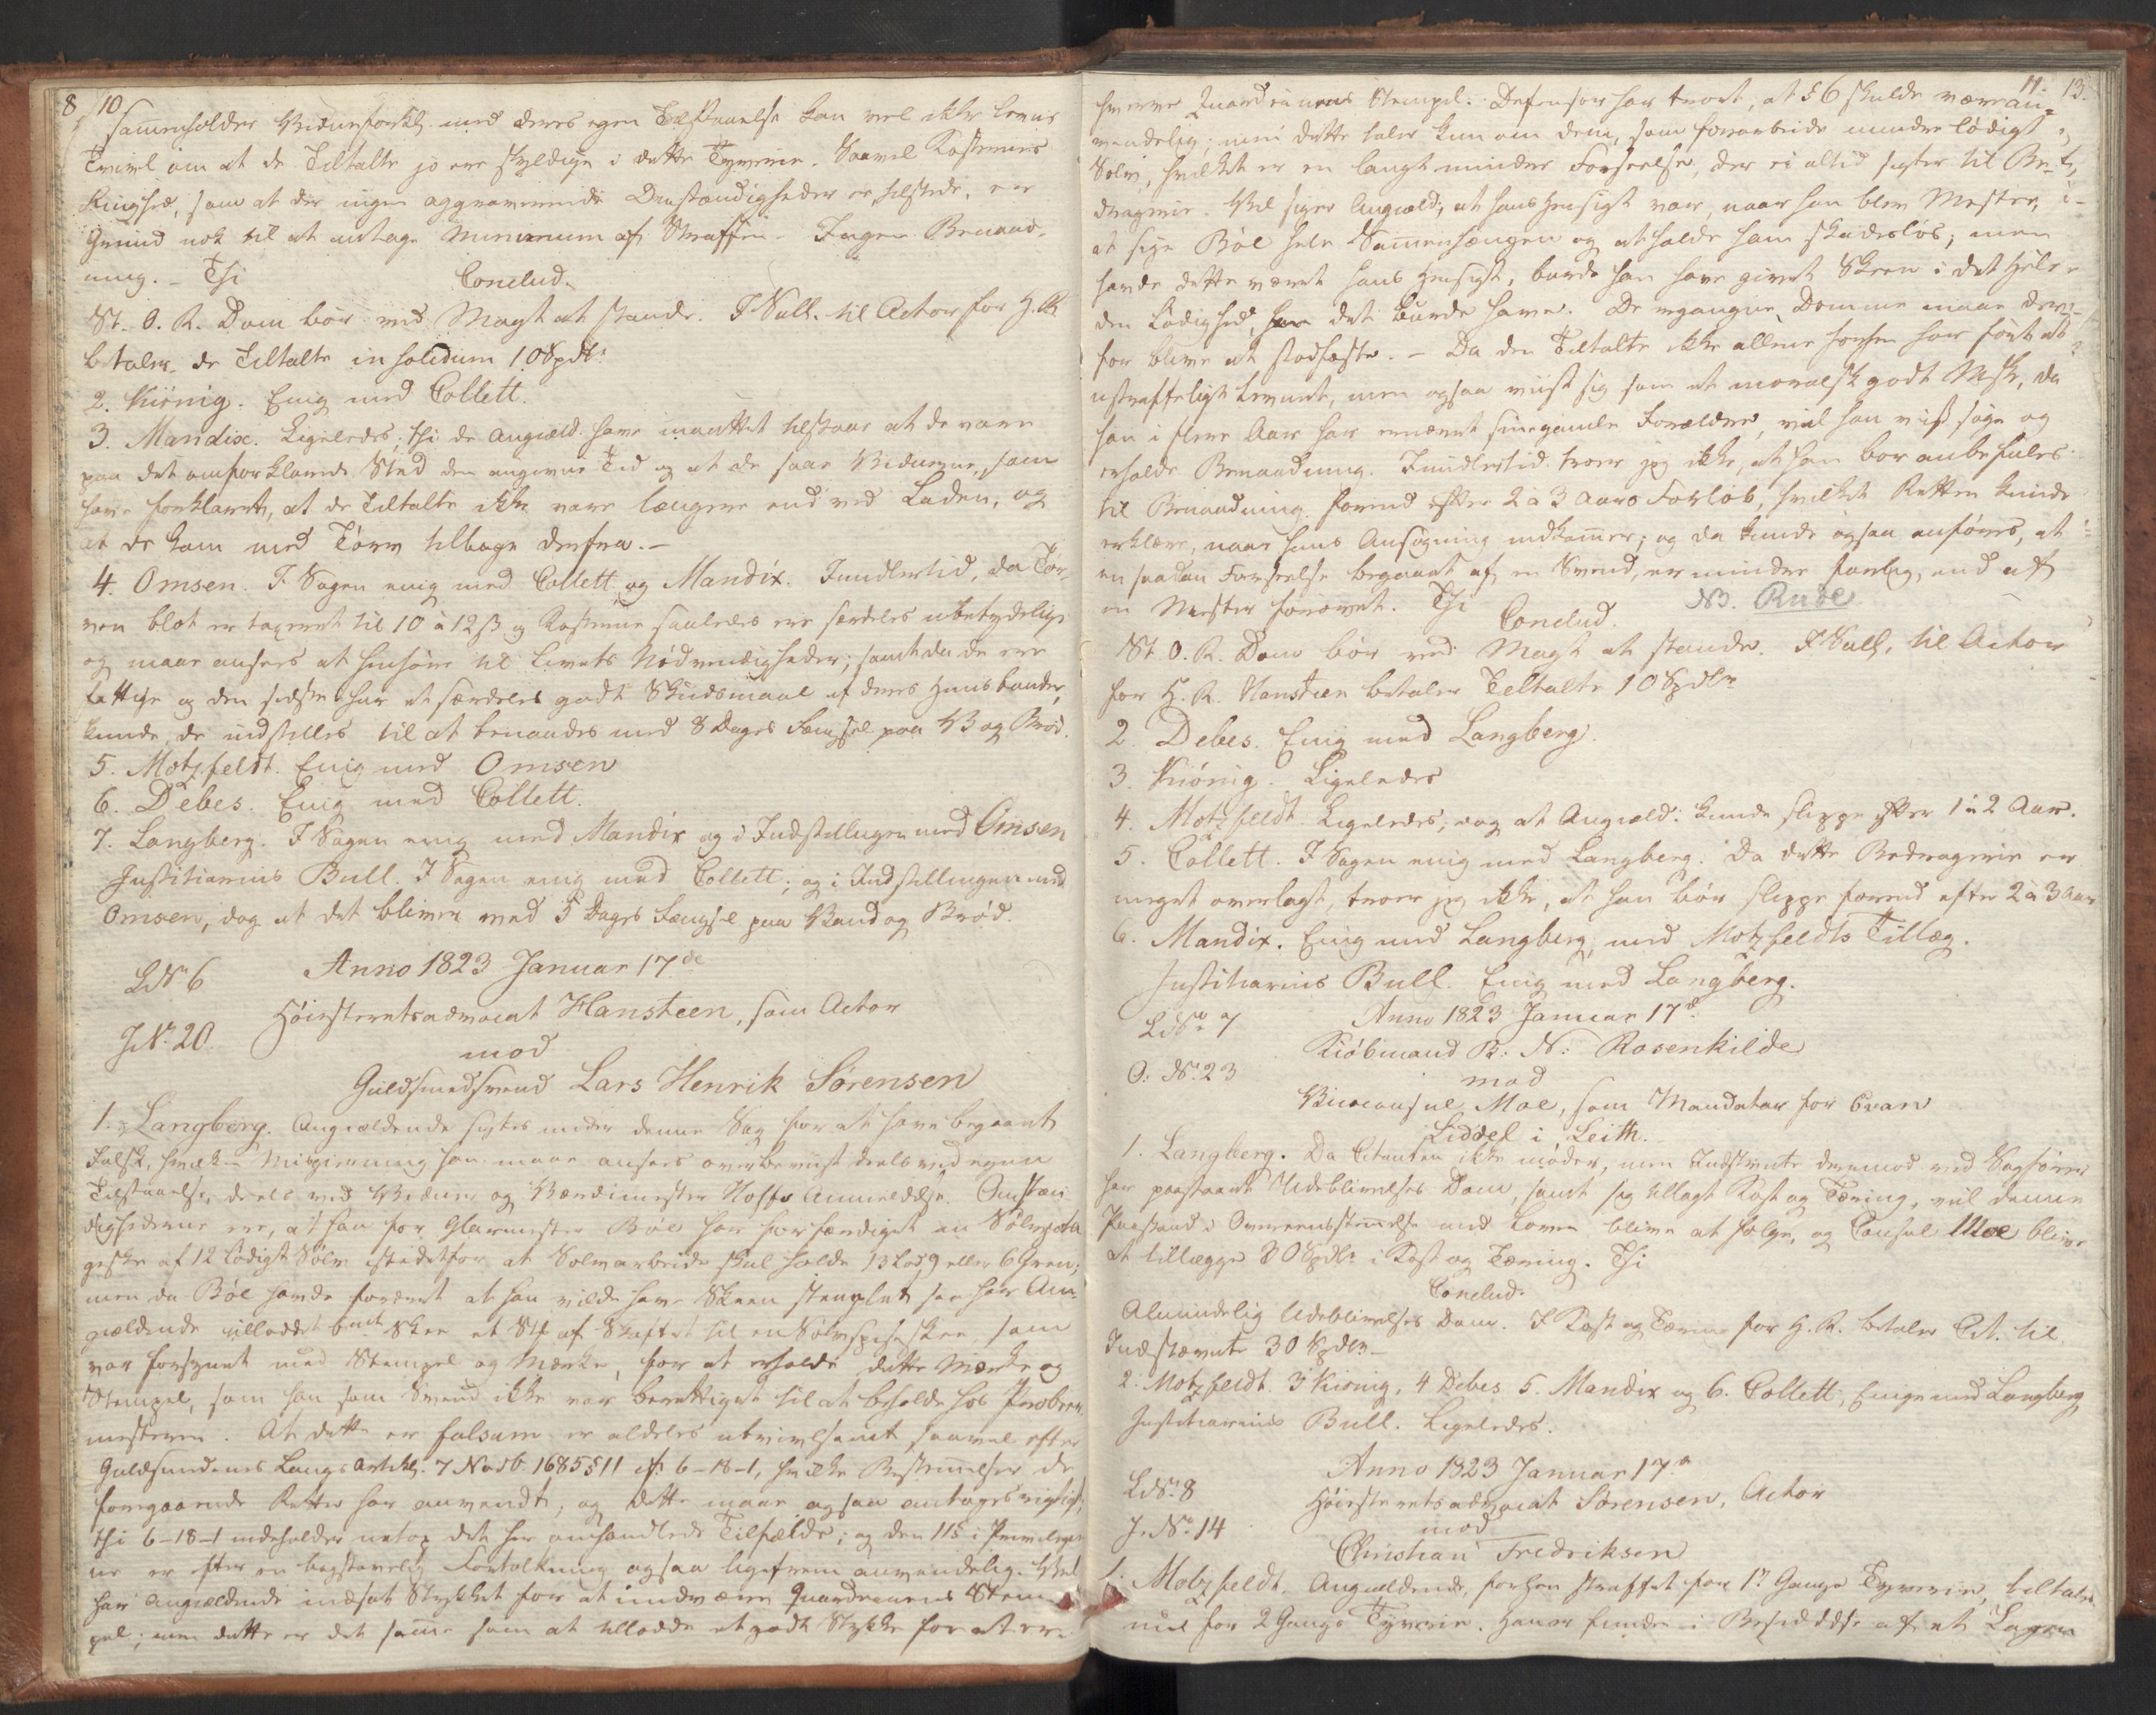 8 10
samenholder Vidneforkl. med deres egen Tilstaaelse kan vel ikke levnes
Tvivl om at de Tiltalte jo ere skyldige i dette Tyverie. Saavel Kosternes
Ringhed, som at der ingen aggraverende Omstændigheder er tilstede, er
Grund nok til at antage Minimum af Straffen. Ingen Benaad-
ning. – Thi
Conclud.
St. O. R. Dom bør ved Magt at stande. I Sall. til Actor for H. R.
betaler de Tiltalte in solidum 10 Spdlr
2. Kiønig. Enig med Collett.
3. Mandix. Ligeledes; thi de Angiæld. have indtil tilstaaet at de vare
paa det omforklarede Sted den angivne Tid og at de saae Vidnerne, som
have forklaret, at de Tiltalte ikke vare længere end ved Laden, og
at de kom med Tørv tilbage derfra. –
4. Omsen. I Sagen enig med Collett og Mandix. Imidlertid, da Tør-
ven blot er taxeret til 10 à 12 ß og Kosterne saaledes ere særdeles ubetydelige
og maae ansees at henhøre til Livets Nødvendigheder; samt da de ere
fattige og den sidste har et særdeles godt Skudsmaal af deres Huusbonder,
kunde de indstilles til at benaades med 8 Dages Fængsel paa V. og Brød.
5. Motzfeldt. Enig med Omsen
6. Debes. Enig med Collett.
7. Langberg. I Sagen enig med Mandix og i Indstillingen med Omsen
Justitiarius Bull. I Sagen enig med Collett; og i Indstillingen med
Omsen, dog at det bliver med 5 Dages Fængsel paa Vand og Brød.
L No 6 Anno 1823 Januar 17de
J. No. 20. Høiesteretsadvocat Hansteen, som Actor
mod
Guldsmedsvend Lars Henrik Sørensen
1. Langberg. Angiældende sigtes under denne Sag for at have begaaet
Falsk, hvilken Misgierning han maae ansees overbeviist deels ved egen
Tilstaaelse, deels ved Vidner og Vardimester Hoffs Anmeldelse. Omstæn-
dighederne ere, at han for Glarmester Bøe har forfærdiget en Sølvpota-
geskee af 12 Lødigt Sølv istedetfor at Sølvarbeide skal holde 13 Lod, 9 eller 6 Gren;
men da Bøe havde fordret at han vilde have Skeen stemplet saa har An-
giældende tilloddet bemt Skee et Stk af Skaftet til en Sølvspiseskee, som
var forsynet med Stempel og Mærke, for at erholde dette Mærke og
Stempel, som han som Svend ikke var berettiget til at beholde hos Probeer-
mesteren. At dette er falsum er aldeles utvivlsomt, saavel efter
Guldsmedenes Laugs Artikl. 7 Novb. 1685 § 11 cf: 6-18-1, hvilke Bestemelser de
foregaaende Retter har anvendt; og dette maae ogsaa antages rigtigt;
thi 6-18-1 indeholder netop det her omhandlede Tilfælde; og den 11 § i Privilegier-
ne er efter en bogstavelig Fortolkning ogsaa ligefrem anvendelig. Vel
har Angiældende indsat Stykket for at undvære Guardeinens Stem-
pel; men dette er det same som at tillodde et godt Stykke for at er-
11. 13.
hverve Guardeinens Stempel. Defensor har troet, at § 6 skulde være an-
vendelig; men dette taler kun om dem, som forarbeide mindre lødigt
Sølv, hvilket er en langt mindre Forseelse, der ei altid sigter til Be-
dragerie. Vel siger Angiæld, at hans Hensigt var, naar han blev Mester,
at sige Bøe hele Samenhængen og at holde ham skadesløs; men
havde dette været hans Hensigt, burde han have givet Skeen i det Hele
den Lødighed, det burde have. De ergangne Domme maae der-
for blive at stadfæste. – Da den Tiltalte ikke allene forhen har ført et
ustraffeligt Levnet, men ogsaa viist sig som et moralsk godt Msk, da
han i flere Aar har ernæret sine gamle Forældre, vil han vist søge og
erholde Benaadning. Imidlertid troer jeg ikke, at han bør anbefales
til Benaadning førend efter 2 à 3 Aars Forløb, hvilket Retten kunde
erklære, naar hans Ansøgning indkomer; og da kunde ogsaa anføres, at
en saadan Forseelse begaaet af en Svend, er mindre farlig, end af
en Mester forøvet. Thi
Conclud.
St. O. R. Dom bør ved Magt at stande. I Sall. til Actor
for H. R. Hansteen betaler Tiltalte 10 Spdlr
2. Debes. Enig med Langberg.
3. Kiønig. Ligeledes
4. Motzfeldt. Ligeledes, dog at Angiæld. kunde slippe efter 1 à 2 Aar.
5. Collett. I Sagen enig med Langberg. Da dette Bedragerie er
meget overlagt, troer jeg ikke, at han bør slippe førend efter 2 à 3 Aar
6. Mandix. Enig med Langberg, med Motzfeldts Tillæg.
Justitiarius Bull. Enig med Langberg.
L No 7 Anno 1823 Januar 17d
Kiøbmand B. N. Rosenkilde
O. No. 23 mod
Viceconsul Moe, som Mandatar for Evan
Liddel i Leith.
1. Langberg. Da Citanten ikke møder, men Indstevnte derimod ved Sagfører
har paastaaet Udeblivelses Dom, samt sig tillagt Kost og Tæring, vil denne
Paastand i Overeensstemelse med Loven blive at følge, og Consul Moe bliver
at tillægge 30 Spdlr i Kost og Tæring. Thi
Conclud.
Almindelig Udeblivelses Dom. I Kost og Tæring for H. R. betaler Cit. til
Indstævnte 30 Spdlr –
2. Motzfeldt. 3 Kiønig, 4 Debes 5. Mandix og 6. Collett, Enige med Langberg
Justitiarius Bull. Ligeledes.
Anno 1823 Januar 17d
L No 8 Høiesteretsadvocat Sørensen, Actor
J. No. 14 mod
Christian Fredriksen
1. Motzfeldt. Angiældende, forhen straffet for 1ste Gangs Tyverie, tiltales
nu for 2 Gangs Tyverie. Han er funden i Besiddelse af et Lagen